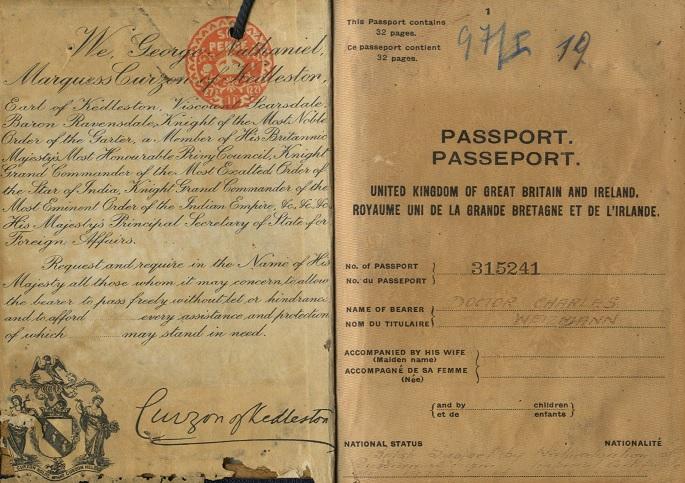 We, George Nathaniel,
Marquess Curzon of Kedleston,
Earl of Kedleston, Viscount Scarsdale,
Baron Ravensdale, Knight of the Most Noble
Order of the Garter, a Member of His Britannic
Majesty's Most Honourable Privy Council, Knight
Grand Commander of the Most Exalted Order of
the Star of India, Knight Grand Commander of the
Most Eminent Order of the Indian Empire, &c. &c. &c.
His Majesty's Principal Secretary of State for
Foreign Affairs.
Request and require in the Name of His
Majesty all those whom it may concern to allow
the bearer to pass freely without let or hindrance
and to afford every assistance and protection
of which may stand in need.
Curzon of Kedleston
SIX
PENCE
1
This Passport contains
32 pages.
Ce passeport contient
32 pages.
97/I 19
PASSPORT.
PASSEPORT.
UNITED KINGDOM OF GREAT BRITAIN AND IRELAND.
ROYAUME UNI DE LA GRANDE BRETAGNE ET DE L'IRLANDE.
No. of PASSPORT 315241
No. du PASSEPORT
NAME OF BEARER DOCTOR CHARLES
NOM DU TITULAIRE
ACCOMPANIED BY HIS WIFE
(Maiden name)
ACCOMPAGNÉ DE SA FEMME
(Née)
and by children
et de enfants
NATIONAL STATUS NATIONALITÉ